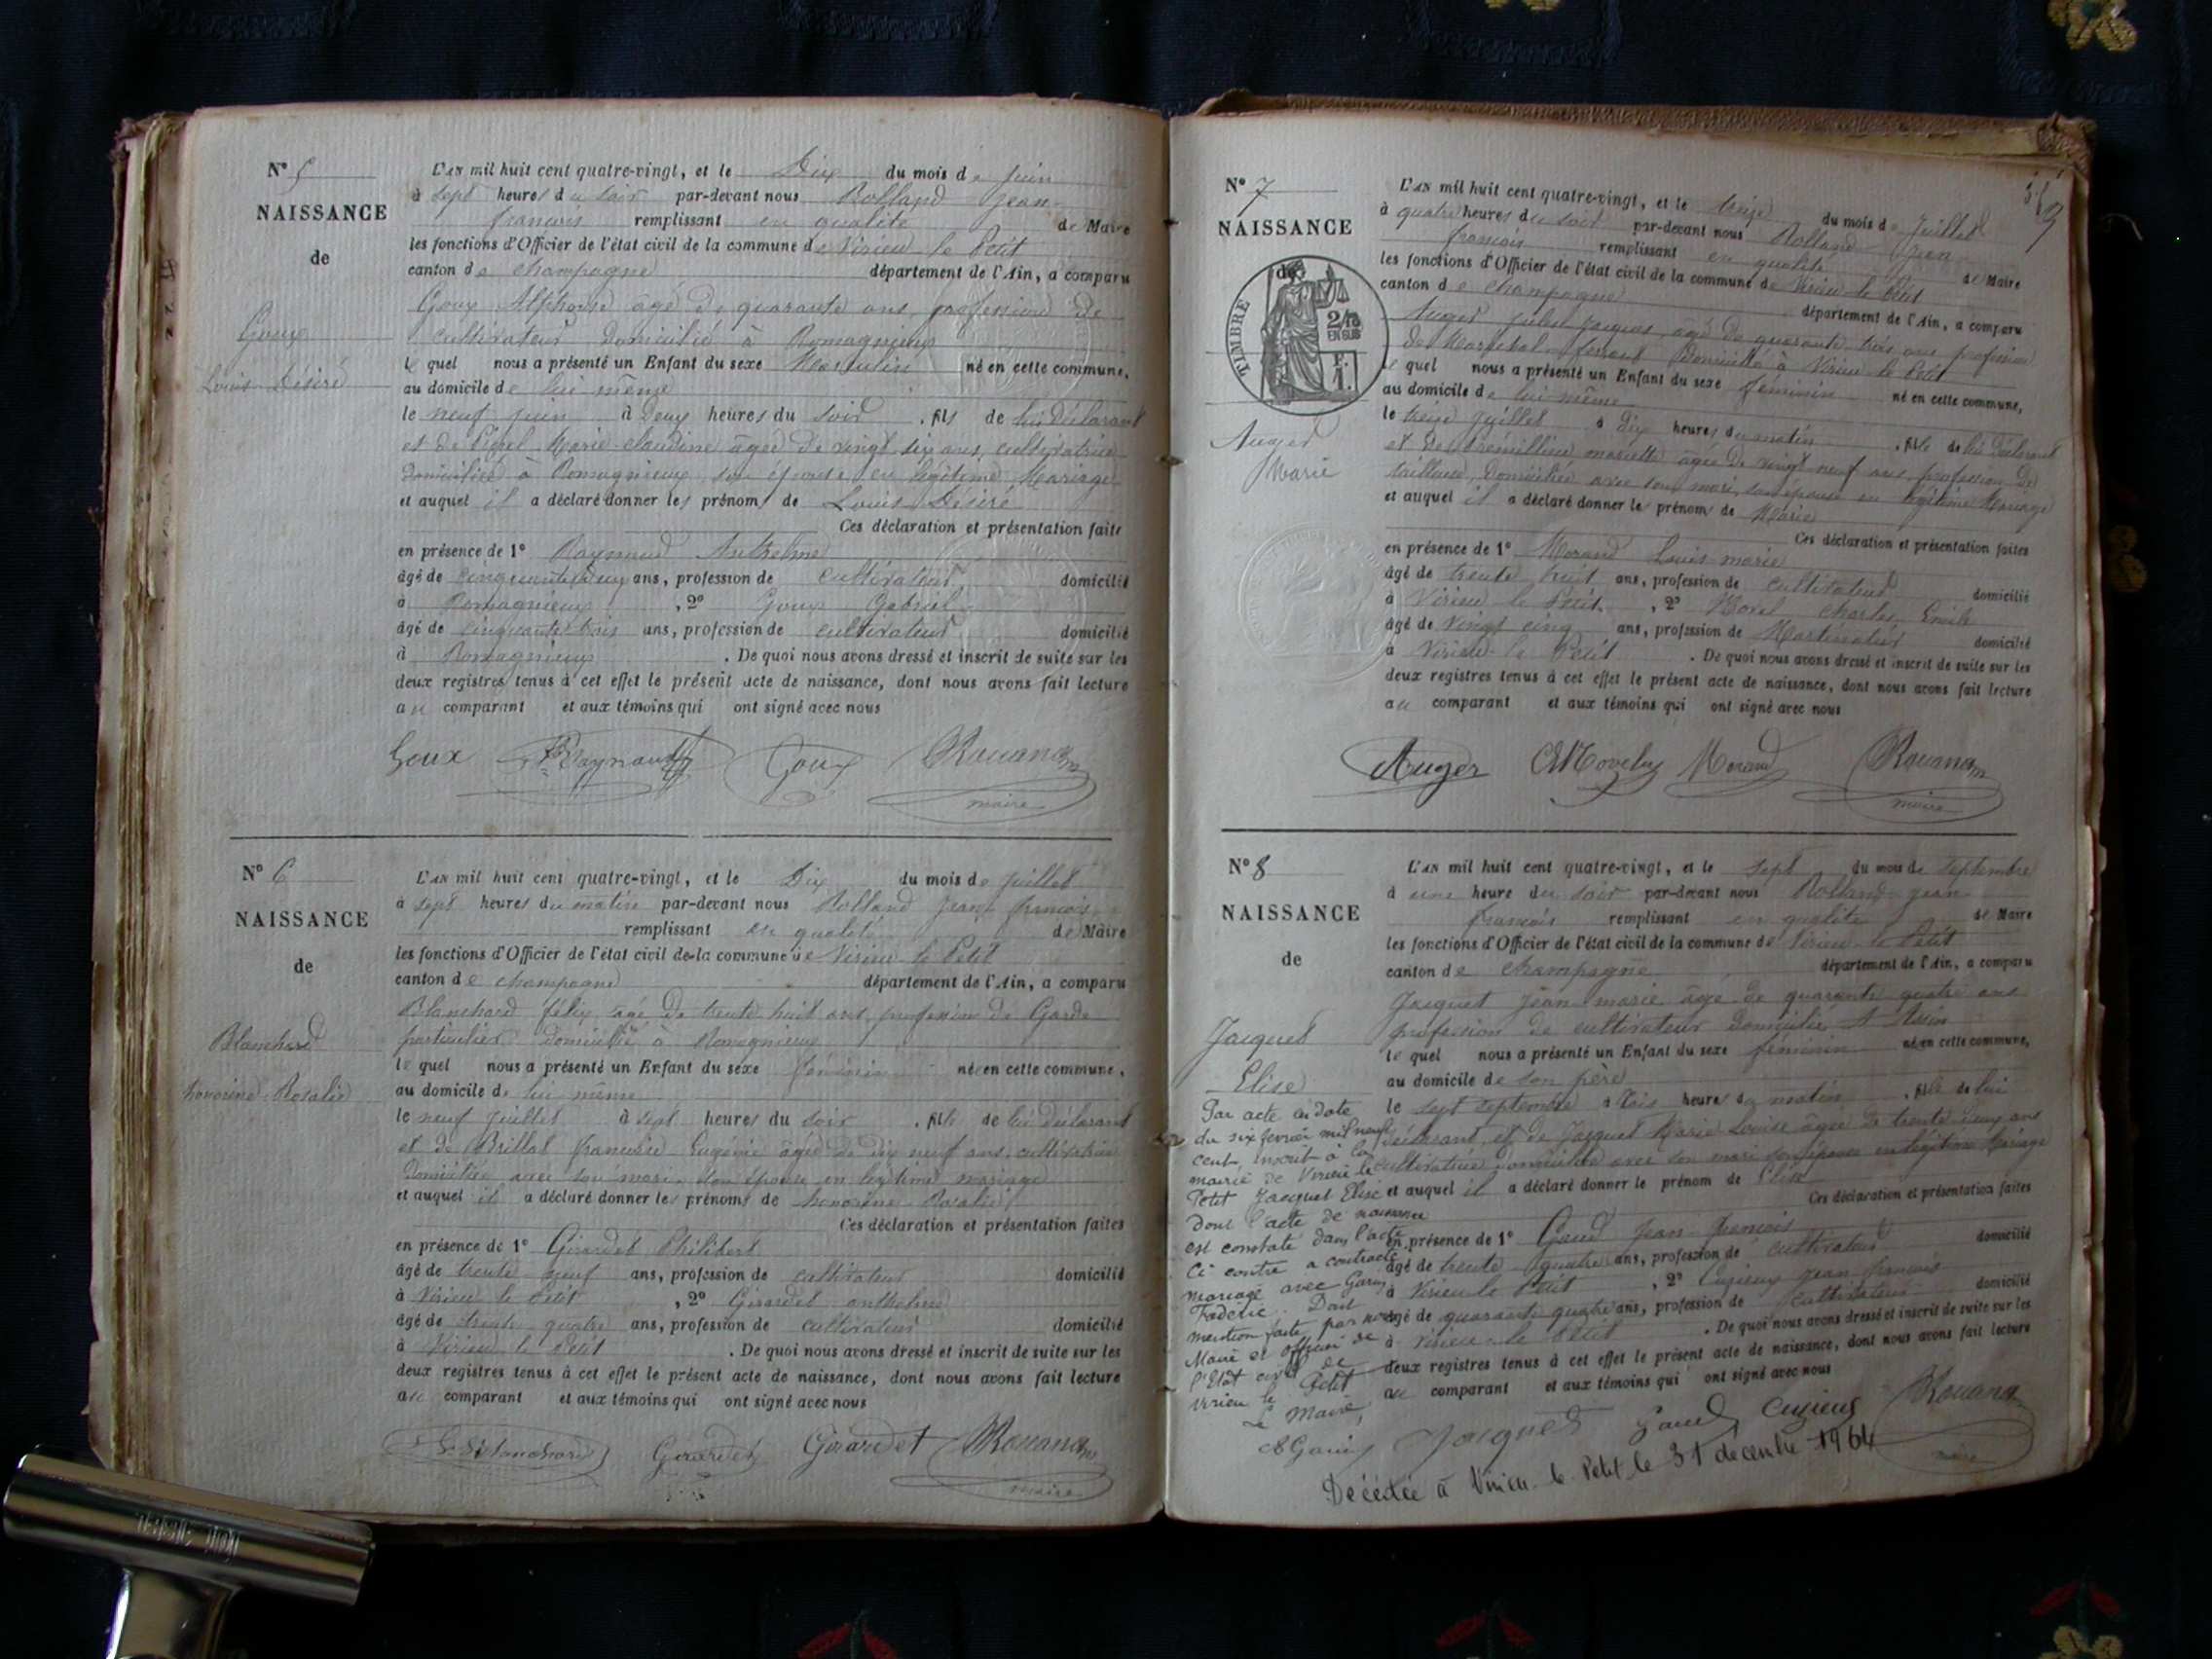 N° 5
NAISSANCE
de
Goux
Louis Désiré
L'AN mil huit cent quatre-vingt, et le Dix du mois de juin
à sept heures du soir par-devant nous Rolland Jean
françois remplissant en qualité de Maire
les fonctions d'Officier de l'état civil de la commune de Virieu le Petit
canton de champagne département de l'Ain, a comparu
Goux Alphonse âgé de quarante ans, profession de
cultivateur domicilié à Romagnieux
le quel nous a présenté un Enfant du sexe Masculin né en cette commune,
au domicile de lui même
le neuf juin à Deux heures du soir, fils de lui Déclarant
et de Marie claudine âgée de vingt six ans, cultivatrice
domiciliée à Romagnieux, son épouse en légitime Mariage
et auquel il a déclaré donner les prénoms de Louis Désiré
Ces déclaration et présentation faite
en présence de 1° Raynaud Anthelme
âgé de cinquante deux ans, profession de cultivateur domicilié
à Romagnieux, 2° Goux Gabriel
âgé de cinquante trois ans, profession de cultivateur domicilié
à Romagnieux. De quoi nous avons dressé et inscrit de suite sur les
deux registres tenus à cet effet le présent acte de naissance, dont nous avons fait lecture
au comparant et aux témoins qui ont signé avec nous
Goux Raynaud Goux
maire
N° 6
NAISSANCE
de
Blanchard
honorine Rosalie
L'AN mil huit cent quatre-vingt, et le Dix du mois de juillet
à sept heures du matin par-devant nous Rolland Jean françois
remplissant en qualité de Maire
les fonctions d'Officier de l'état civil de la commune de Virieu le Petit
canton de champagne département de l'Ain, a comparu
Blanchard félix âgé de trente huit ans, profession de Garde
particulier domicilié à Romagnieux
le quel nous a présenté un Enfant du sexe féminin né en cette commune,
au domicile de lui même
le neuf juillet à sept heures du soir, fille de lui déclarant
et de Brillat françoise Eugénie âgée de dix neuf ans, cultivatrice
domiciliée avec son mari, son épouse en légitime mariage
et auquel il a déclaré donner les prénoms de honorine Rosalie
Ces déclaration et présentation faites
en présence de 1° Girardet Philibert
âgé de trente neuf ans, profession de cultivateur domicilié
à Virieu le Petit, 2° Girardet anthelme
âgé de trente quatre ans, profession de cultivateur domicilié
à Virieu le Petit. De quoi nous avons dressé et inscrit de suite sur les
deux registres tenus à cet effet le présent acte de naissance, dont nous avons fait lecture
au comparant et aux témoins qui ont signé avec nous
Blanchard Girardet Girardet
maire
N° 7
NAISSANCE
de
TIMBRE
2/10
EN SUS
Auger
Marie
L'AN mil huit cent quatre-vingt, et le treize du mois de Juillet
à quatre heures du soir par-devant nous Rolland Jean
françois remplissant en qualité de Maire
les fonctions d'Officier de l'état civil de la commune de Virieu le Petit
canton de champagne département de l'Ain, a comparu
Auger jules Jacques, âgé de quarante trois ans profession
de Maréchal ferrant domicilié à Virieu le Petit
le quel nous a présenté un Enfant du sexe féminin né en cette commune,
au domicile de lui même
le treize juillet à dix heures du matin, fille de lui déclarant
et de mariette âgée de vingt neuf ans, profession de
tailleuse, domiciliée avec son mari, son épouse en légitime Mariage
et auquel il a déclaré donner les prénom de Marie
Ces déclaration et présentation faites
en présence de 1° Morand Louis marie
âgé de trente huit ans, profession de cultivateur domicilié
à Virieu le Petit, 2° charles Emile
âgé de vingt cinq ans, profession de domicilié
à Virieu le Petit. De quoi nous avons dressé et inscrit de suite sur les
deux registres tenus à cet effet le présent acte de naissance, dont nous avons fait lecture
au comparant et aux témoins qui ont signé avec nous
Auger Morand
maire
N° 8
NAISSANCE
de
Jacquet
Elise
Par acte en date
du six fevrier mil neuf
cent, inscrit à la
mairie de Virieu le
Petit Jacquet Elise
dont l'acte de naissance
est constaté dans l'acte
Ci contre a contracté
mariage avec Garin
Fréderic. Dont
mention faite par nous
Maire et officier de
l'Etat civil de
Virieu le Petit
Le Maire,
L'AN mil huit cent quatre-vingt, et le sept du mois de septembre
à une heure du soir par-devant nous Rolland jean
françois remplissant en qualité de Maire
les fonctions d'Officier de l'état civil de la commune de Virieu le Petit
canton de champagne département de l'Ain, a comparu
Jacquet Jean marie âgé de quarante quatre ans
profession de cultivateur domicilié à
le quel nous a présenté un Enfant du sexe féminin né en cette commune,
au domicile de son père
le sept septembre à trois heures du matin, fille de lui
déclarant, et de Jacquet Marie Louise âgée de trente deux ans
cultivatrice domiciliée avec son mari son épouse en légitime Mariage
et auquel il a déclaré donner le prénom de Elise
Ces déclaration et présentation faites
en présence de 1° Gaud Jean françois
âgé de trente quatre ans, profession de cultivateur domicilié
à Virieu le Petit, 2° Cuzieux jean françois
âgé de quarante quatre ans, profession de cultivateur domicilié
à Virieu le Petit. De quoi nous avons dressé et inscrit de suite sur les
deux registres tenus à cet effet le présent acte de naissance, dont nous avons fait lecture
au comparant et aux témoins qui ont signé avec nous
Jacquet Gaud Cuzieux
maire
Décédée à Virieu-le-Petit le 31 décembre 1964